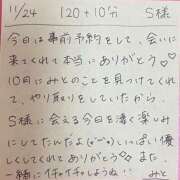 11/24 120+10分 S様
今日は事前予約をして、会いに
来てくれて本当にありがとう♡
10月にみとのことを見つけてくれ
て、やり取りをしていたから、
S様に会える今日を凄く楽しみ
にしてたんだよ(o^^o)いっぱい優
しくしてくれてありがとう また、
一緒にイチャイチャしようね♡
みと